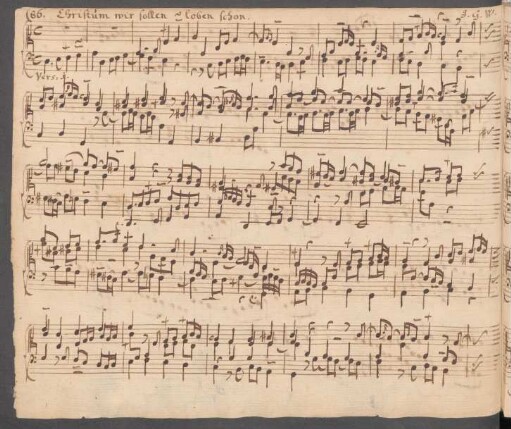 186. Christum wir sollen loben schon. J. G. W.
Vers. 1.